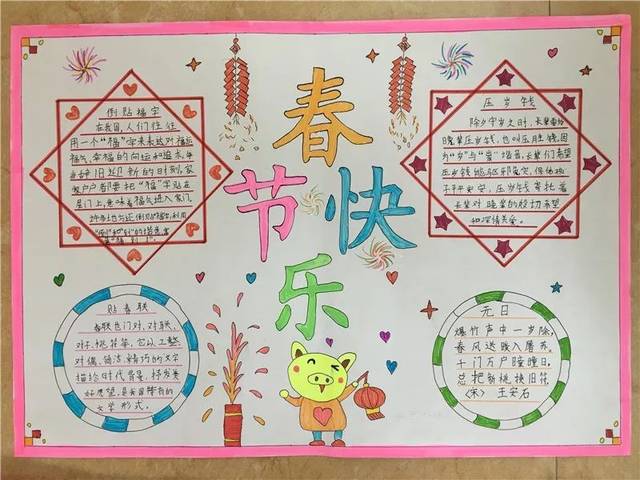 春
节
快
乐
倒贴福字
在我国,人们往往
用一个"福"字来表达对福运
福气、幸福的向往和追求,每
当辞旧迎新的时刻,家
家户户都要把"福"字贴在
屋门上,意味着福气进入家门,
压岁钱
除夕守岁之时,长辈要给
晚辈压岁钱,也叫压胜钱,因
为"岁"与"祟"谐音,长辈们希望
压岁钱能
平平安安,压岁钱寄托着
长辈对晚辈的殷切希望
和深情关爱。
贴春联
春联也门对、对联、
对子、桃符等,它以工整、
对偶、简洁、精巧的文字
描绘时代背景,抒发美
好愿望,是我国特有的
文学形式。
元日
爆竹声中一岁除,
春风送暖入屠苏。
千门万户曈曈日,
总把新桃换旧符。
(宋) 王安石